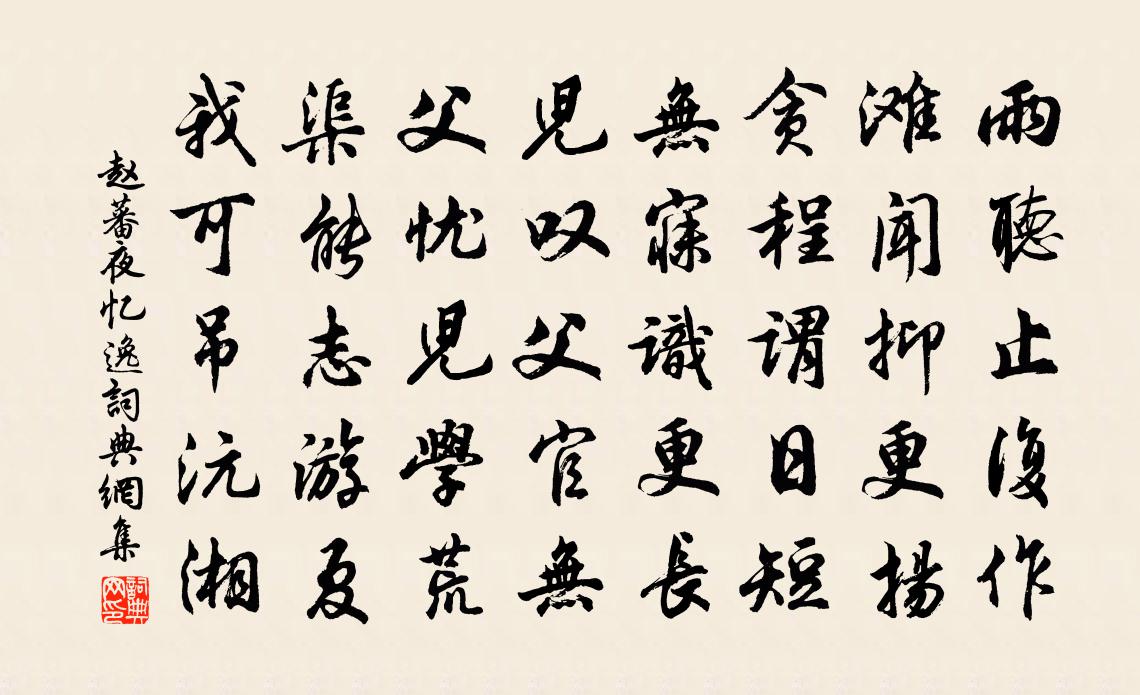 雨聽止復作
滩聞抑更揚
贪程謂日短
無寐識更長
児叹父官無
父忧児學荒
渠能志游夏
我可吊沅湘
赵蕃夜忆逸詞典網集
詞典網印